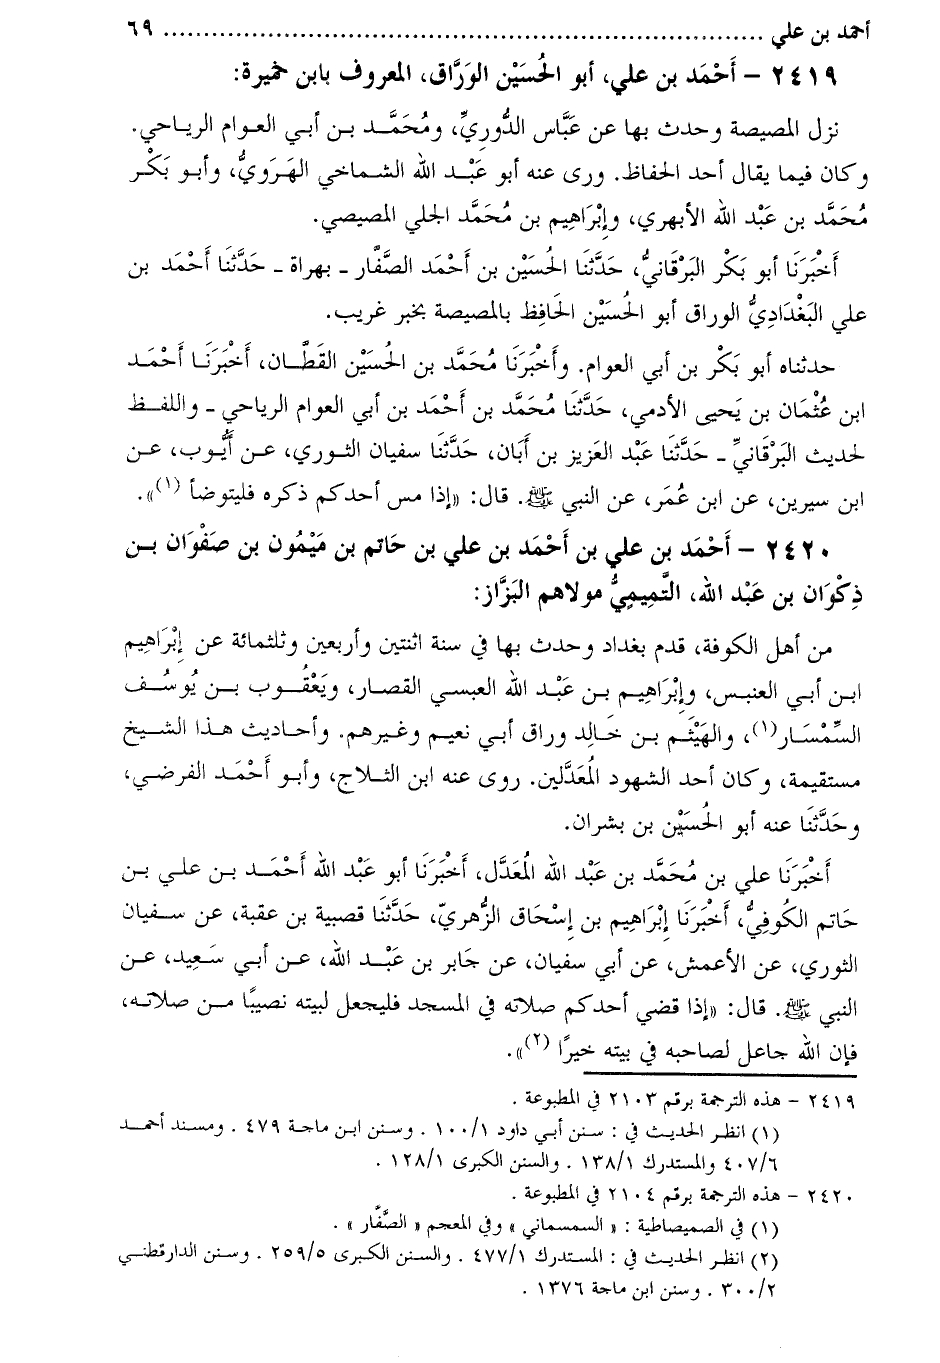 أحمد بن علي ........................................................................ ٦٩
٢٤١٩ - أَحْمَد بن علي، أبو الحُسَيْن الوَرَّاق، المعروف بابن خميرة:
نزل المصيصة وحدث بها عن عَبَّاس الدُّورِيِّ، ومُحَمَّد بن أبي العوام الرياحي.
وكان فيما يقال أحد الحفاظ. ورى عنه أبو عَبْد الله الشماخي الهَرَوِيُّ، وأبو بَكْر
مُحَمَّد بن عَبْد الله الأبهري، وإِبْرَاهِيم بن مُحَمَّد الجلي المصيصي.
أَخْبَرَنَا أبو بَكْر البَرْقَانيُّ، حَدَّثَنَا الحُسَيْن بن أَحْمَد الصَّفَّار - بهراة - حَدَّثَنَا أَحْمَد بن
علي البَغْدَادِيُّ الوراق أبو الحُسَيْن الحَافِظ بالمصيصة بخبر غريب.
حدثناه أبو بَكْر بن أبي العوام. وأَخْبَرَنَا مُحَمَّد بن الحُسَيْن القَطَّان، أَخْبَرَنَا أَحْمَد
ابن عُثْمَان بن يَحيى الأدمي، حَدَّثَنَا مُحَمَّد بن أَحْمَد بن أبي العوام الرياحي - واللفظ
لحديث البَرْقَانيِّ - حَدَّثَنَا عَبْد العزيز بن أَبَان، حَدَّثَنَا سفيان الثوري، عن أَيُّوب، عن
ابن سيرين، عن ابن عُمَر، عن النبي ﷺ. قال: «إذا مس أحدكم ذكره فليتوضأ (١)».
٢٤٢٠ - أَحْمَد بن علي بن أَحْمَد بن علي بن حَاتم بن مَيْمُون بن صَفْوَان بن
ذِكْوَان بن عَبْد الله، التَّمِيمِيُّ مولاهم البَزَّاز:
من أهل الكوفة، قدم بغداد وحدث بها في سنة اثنتين وأربعين وثلثمائة عن إِبْرَاهِيم
ابن أبي العنبس، وإِبْرَاهِيم بن عَبْد الله العبسي القصار، ويَعْقُوب بن يُوسُف
السِّمْسَار(١)، والهَيْثَم بن خَالِد وراق أبي نعيم وغيرهم. وأحاديث هذا الشيخ
مستقيمة، وكان أحد الشهود المُعَدَّلين. روى عنه ابن الثلاج، وأبو أَحْمَد الفرضي،
وحَدَّثَنَا عنه أبو الحُسَيْن بن بشران.
أَخْبَرَنَا علي بن مُحَمَّد بن عَبْد الله المُعَدَّل، أَخْبَرَنَا أبو عَبْد الله أَحْمَد بن علي بن
حَاتم الكُوفِيُّ، أَخْبَرَنَا إِبْرَاهِيم بن إِسْحَاق الزُّهريّ، حَدَّثَنَا قصبية بن عقبة، عن سفيان
الثوري، عن الأعمش، عن أبي سفيان، عن جَابر بن عَبْد الله، عن أبي سَعِيد، عن
النبي ﷺ. قال: «إذا قضي أحدكم صلاته في المسجد فليجعل لبيته نصيبًا من صلاته،
فإن الله جاعل لصاحبه في بيته خيرًا (٢)».
٢٤١٩ - هذه الترجمة برقم ٢١٠٣ في المطبوعة .
(١) انظر الحديث في : سنن أبي داود ١/ ١٠٠ . وسنن ابن ماجة ٤٧٩ . ومسند أحمد
٦/ ٤٠٧ والمستدرك ١/ ١٣٨ . والسنن الكبرى ١/ ١٢٨ .
٢٤٢٠ - هذه الترجمة برقم ٢١٠٤ في المطبوعة .
(١) في الصميصاطية : « السمسماني » وفي المعجم « الصَّفَّار » .
(٢) انظر الحديث في : المستدرك ١/ ٤٧٧ . والسنن الكبرى ٥/ ٢٥٩ . وسنن الدارقطني
٢/ ٣٠٠ . وسنن ابن ماجة ١٣٧٦ .